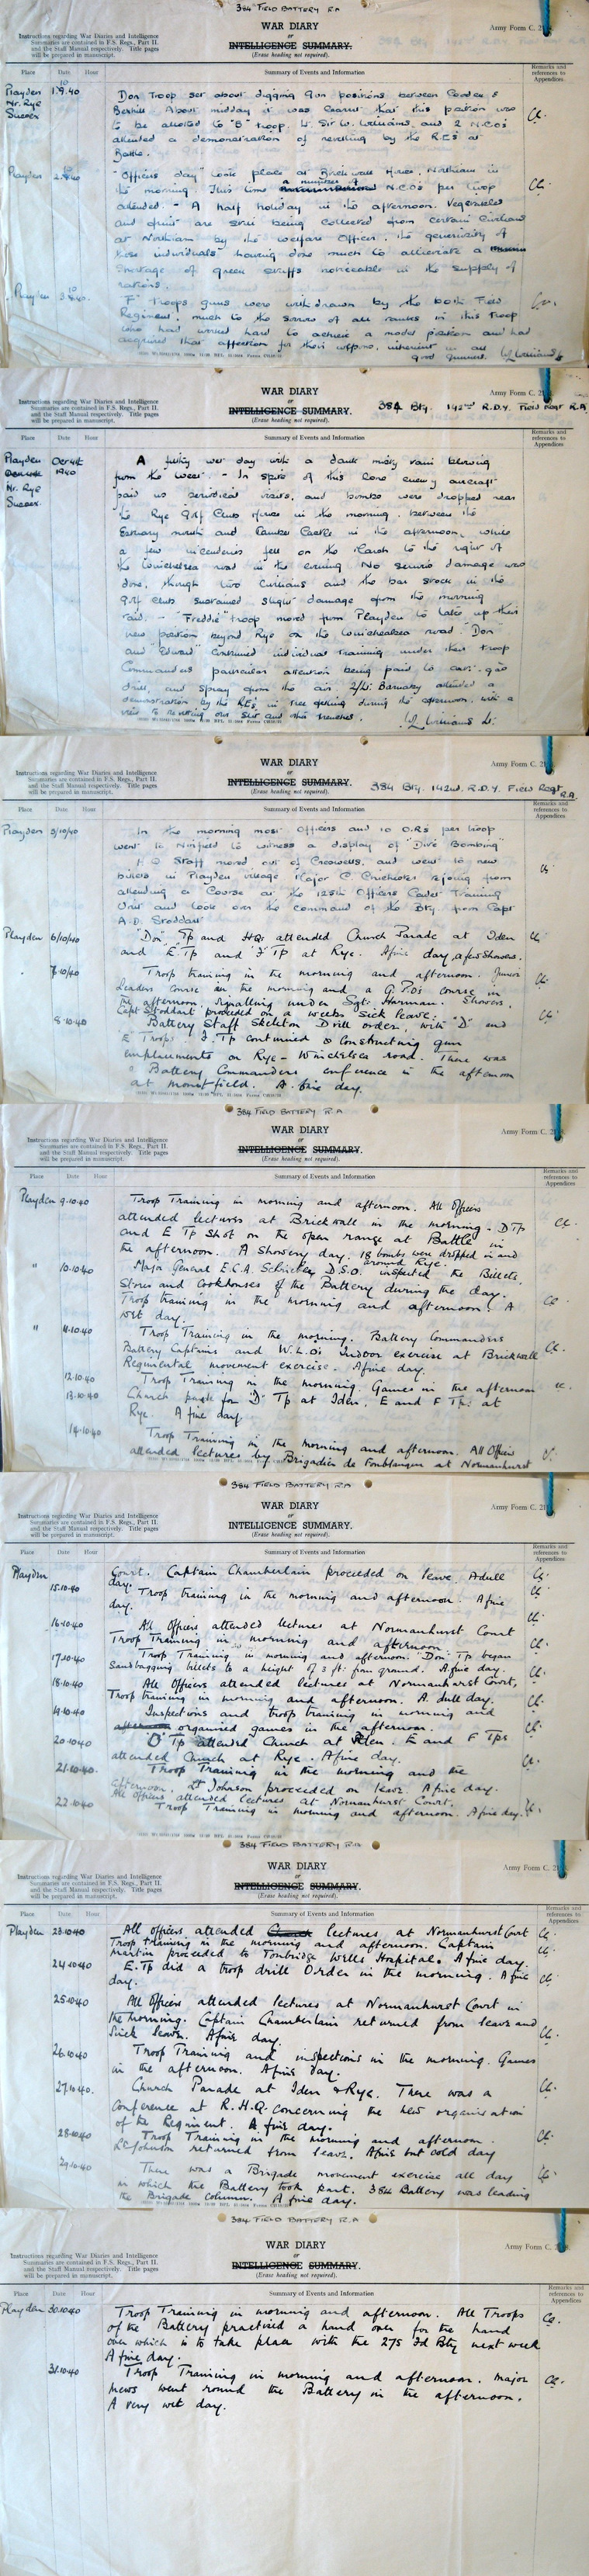 384 FIELD BATTERY R.A
WAR DIARY
or
INTELLIGENCE SUMMARY.
(Erase heading not required).
Army Form C. 21
Instructions regarding War Diaries and Intelligence
Summaries are contained in F.S. Regs., Part II.
and the Staff Manual respectively. Title pages
will be prepared in manuscript.
Place Date Hour Summary of Events and Information Remarks and references to Appendices
Playden 1.10.40 Don Troop set about digging gun positions between Cooden &
Nr. Rye Bexhill. About midday it was learnt that this position was
Sussex to be allotted to "B" troop. Lt. Sir W. Williams, and 2 N.C.O's
attended a demonstration of revetting by the R.E's at
Battle.
Playden 2.10.40 "Officers day" took place at Brickwall House, Northiam in
the morning. This time a number of N.C.O's per troop
attended. - A half holiday in the afternoon. Vegetables
and fruit are still being collected from certain civilians
at Northiam by the Welfare Officer, the generosity of
these individuals having done much to alleviate a
shortage of green stuffs noticeable in the supply of
rations.
Playden 3.10.40. "F" troops guns were withdrawn by the Field
Regiment, much to the sorrow of all ranks in this troop
who had worked hard to achieve a model position and had
acquired that affection for their inherent in all
good gunners. Williams Lt
WAR DIARY
or
INTELLIGENCE SUMMARY.
(Erase heading not required).
Army Form C. 21
384 Bty. 142nd R.D.Y. Field Regt R.A
Instructions regarding War Diaries and Intelligence
Summaries are contained in F.S. Regs., Part II.
and the Staff Manual respectively. Title pages
will be prepared in manuscript.
Place Date Hour Summary of Events and Information Remarks and references to Appendices
Playden Oct 4th A wet day with a dank misty rain blowing
1940 from the West. - In spite of this lone enemy aircraft
Nr. Rye paid us periodical visits, and bombs were dropped near
Sussex. the Rye Golf Club House in the morning, between the
Estuary mouth and Camber Castle in the afternoon, while
a few incendiaries fell on the Marsh to the right of
the Winchelsea road in the evening No serious damage was
done, though two civilians and the bar stock in the
Golf Club sustained slight damage from the morning
raid. - "Freddie" troop moved from Playden to take up their
new position beyond Rye on the Winchelsea road. "Don"
and "Edward" continued individual training under their troop
Commanders particular attention being paid to anti-gas
drill, and spray from the air. 2/Lt. Barnaby attended a
demonstration by the REs, in tree felling during the afternoon, with a
view to revetting our slit and other trenches. Williams Lt.
WAR DIARY
or
INTELLIGENCE SUMMARY.
(Erase heading not required).
Army Form C. 21
384 Bty. 142nd. R.D.Y. Field Regt
R.A.
Instructions regarding War Diaries and Intelligence
Summaries are contained in F.S. Regs., Part II.
and the Staff Manual respectively. Title pages
will be prepared in manuscript.
Place Date Hour Summary of Events and Information Remarks and references to Appendices
Playden 5/10/40 In the morning most Officers and 10 O.R's per troop
went to Ninfield to witness a display of "Dive Bombing"
H Q Staff moved out of Creowells, and went to new
billets in Playden village Major C Chichester rejoing from
attending a Course at the 125th Officers Cadet Training
Unit and took over the command of the Bty from Capt
A.D. Stoddart
Playden 6/10/40 "Don" Tp and HQs attended Church Parade at Iden
and E Tp and "F" TP at Rye. A fine day, a few showers.
7/10/40 Troop training in the morning and afternoon. Junior
Leaders course in the morning and a G.P.O's course in
the afternoon, Signalling under Sgt. Harman. Showers.
Capt Stoddart proceded on a weeks sick leave.
8.10.40 Battery Staff Skeleton Drill order, with "D" and
E Troops F. Tp continued constructing gun
emplacements on Rye - Winchelsea road. There was
a Battery Commanders conference in the afternoon
at Mountfield. A fine day.
384 FIELD BATTERY R.A
WAR DIARY
or
INTELLIGENCE SUMMARY.
(Erase heading not required).
Army Form C. 21
Instructions regarding War Diaries and Intelligence
Summaries are contained in F.S. Regs., Part II.
and the Staff Manual respectively. Title pages
will be prepared in manuscript.
Place Date Hour Summary of Events and Information Remarks and references to Appendices
Playden 9.10.40 Troop Training in morning and afternoon. All Officers
attended lectures at Brickwall in the morning - D Tp
and E Tp shot on the open range at Battle in
the afternoon. A Showery day. 18 bombs were dropped in and
around Rye.
" 10.10.40 Major General E.C.A. Schreiber D.S.O. inspected the Billets,
Stores and Cookhouses of the Battery during the day.
Troop training in the morning and afternoon. A
wet day.
" 11.10.40 Troop Training in the morning. Battery Commanders
Battery Captains and W.L.O's Indoor exercise at Brickwall
Regimental movement exercise. A fine day.
12.10.40 Troop Training in the morning. Games in the afternoon
13.10.40 Church parade for "D" Tp at Iden, E and F Tps. at
Rye. A fine day.
14.10.40 Troop Training in the morning and afternoon. All Officers
attended lectures by Brigadier de Fonblanque at Normanhurst
384 FIELD BATTERY R.A
WAR DIARY
or
INTELLIGENCE SUMMARY.
(Erase heading not required).
Army Form C. 21
Instructions regarding War Diaries and Intelligence
Summaries are contained in F.S. Regs., Part II.
and the Staff Manual respectively. Title pages
will be prepared in manuscript.
Place Date Hour Summary of Events and Information Remarks and references to Appendices
Playden Court. Captain Chamberlain proceeded on leave. A dull
day.
15.10.40 Troop training in the morning and afternoon. A fine
day.
16.10.40 All Officers attended lectures at Normanhurst Court
Troop Training in morning and afternoon.
17.10.40 Troop Training in morning and afternoon. "Don" Tp began
Sandbagging billets to a height of 3 ft. from ground. A fine day.
18.10.40 All Officers attended lectures at Normanhurst Court,
Troop training in morning and afternoon. A dull day.
19.10.40 Inspections and troop training in morning and
organised games in the afternoon.
20.10.40 "D" Tp attended Church at Iden. E and F Tps
attended Church at Rye. A fine day.
21.10.40. Troop Training in the morning and the
afternoon. Lt Johnson proceeded on leave. A fine day.
All Officers attended lectures at Normanhurst Court.
22.10.40 Troop Training in morning and afternoon. A fine day.
384 FIELD BATTERY R.A
WAR DIARY
or
INTELLIGENCE SUMMARY.
(Erase heading not required).
Army Form C. 2
Instructions regarding War Diaries and Intelligence
Summaries are contained in F.S. Regs., Part II.
and the Staff Manual respectively. Title pages
will be prepared in manuscript.
Place Date Hour Summary of Events and Information Remarks and references to Appendices
Playden 23.10.40 All officers attended Church lectures at Normanhurst Court
Troop training in the morning and afternoon. Captain
Martin proceded to Tonbridge Wells Hospital. A fine day.
24.10.40 E. Tp did a troop drill Order in the morning. A fine
day.
25.10.40 All Officers attended lectures at Normanhurst Court in
the morning. Captain Chamberlain returned from leave and
Sick leave. A fine day.
26.10.40 Troop Training and inspections in the morning. Games
in the afternoon. A fine day.
27.10.40. Church Parade at Iden & Rye. There was a
conference at R.H.Q. concerning the new organisation
of the Regiment. A fine day.
28.10.40 Troop Training in the morning and afternoon.
Lt Johnson returned from leave. A fine but cold day
29.10.40 There was a Brigade movement exercise all day
in which the Battery took part. 384 Battery was leading
the Brigade column. A fine day.
384 FIELD BATTERY R.A
WAR DIARY
or
INTELLIGENCE SUMMARY.
(Erase heading not required).
Army Form C. 2
Instructions regarding War Diaries and Intelligence
Summaries are contained in F.S. Regs., Part II.
and the Staff Manual respectively. Title pages
will be prepared in manuscript.
Place Date Hour Summary of Events and Information Remarks and references to Appendices
Playden 30.10.40 Troop Training in morning and afternoon. All Troops
of the Battery practised a hand over for the hand
over which is to take place with the 275 Fd Bty next week
A fine day.
31.10.40 Troop Training in morning and afternoon. Major
Mews went round the Battery in the afternoon.
A very wet day.